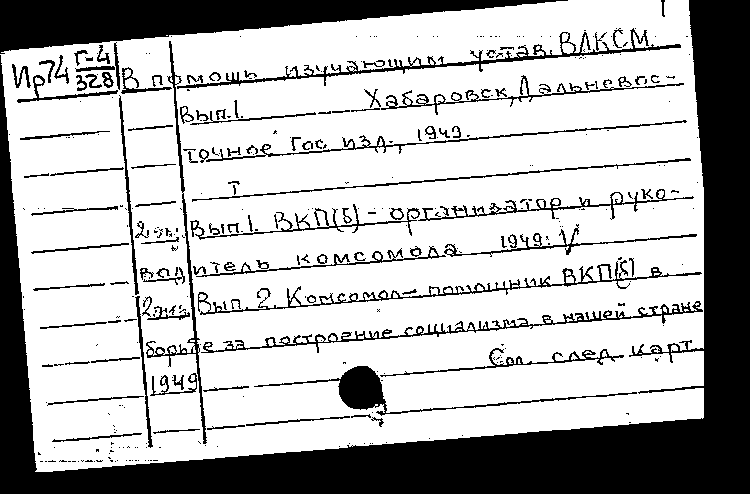 1
Ир74 Г-4
328 В помощь изучающим устав. ВЛКСМ.
Вып.1. Хабаровск, Дальневос-
точное Гос изд., 1949.
I
2 экз. Вып.1. ВКП(б) - организатор и руко-
водитель комсомола 1949. V
2 экз. Вып. 2. Комсомол - помощник ВКП(б) в
борьбе за построение социализма, в нашей стране
1949 См. след. карт.